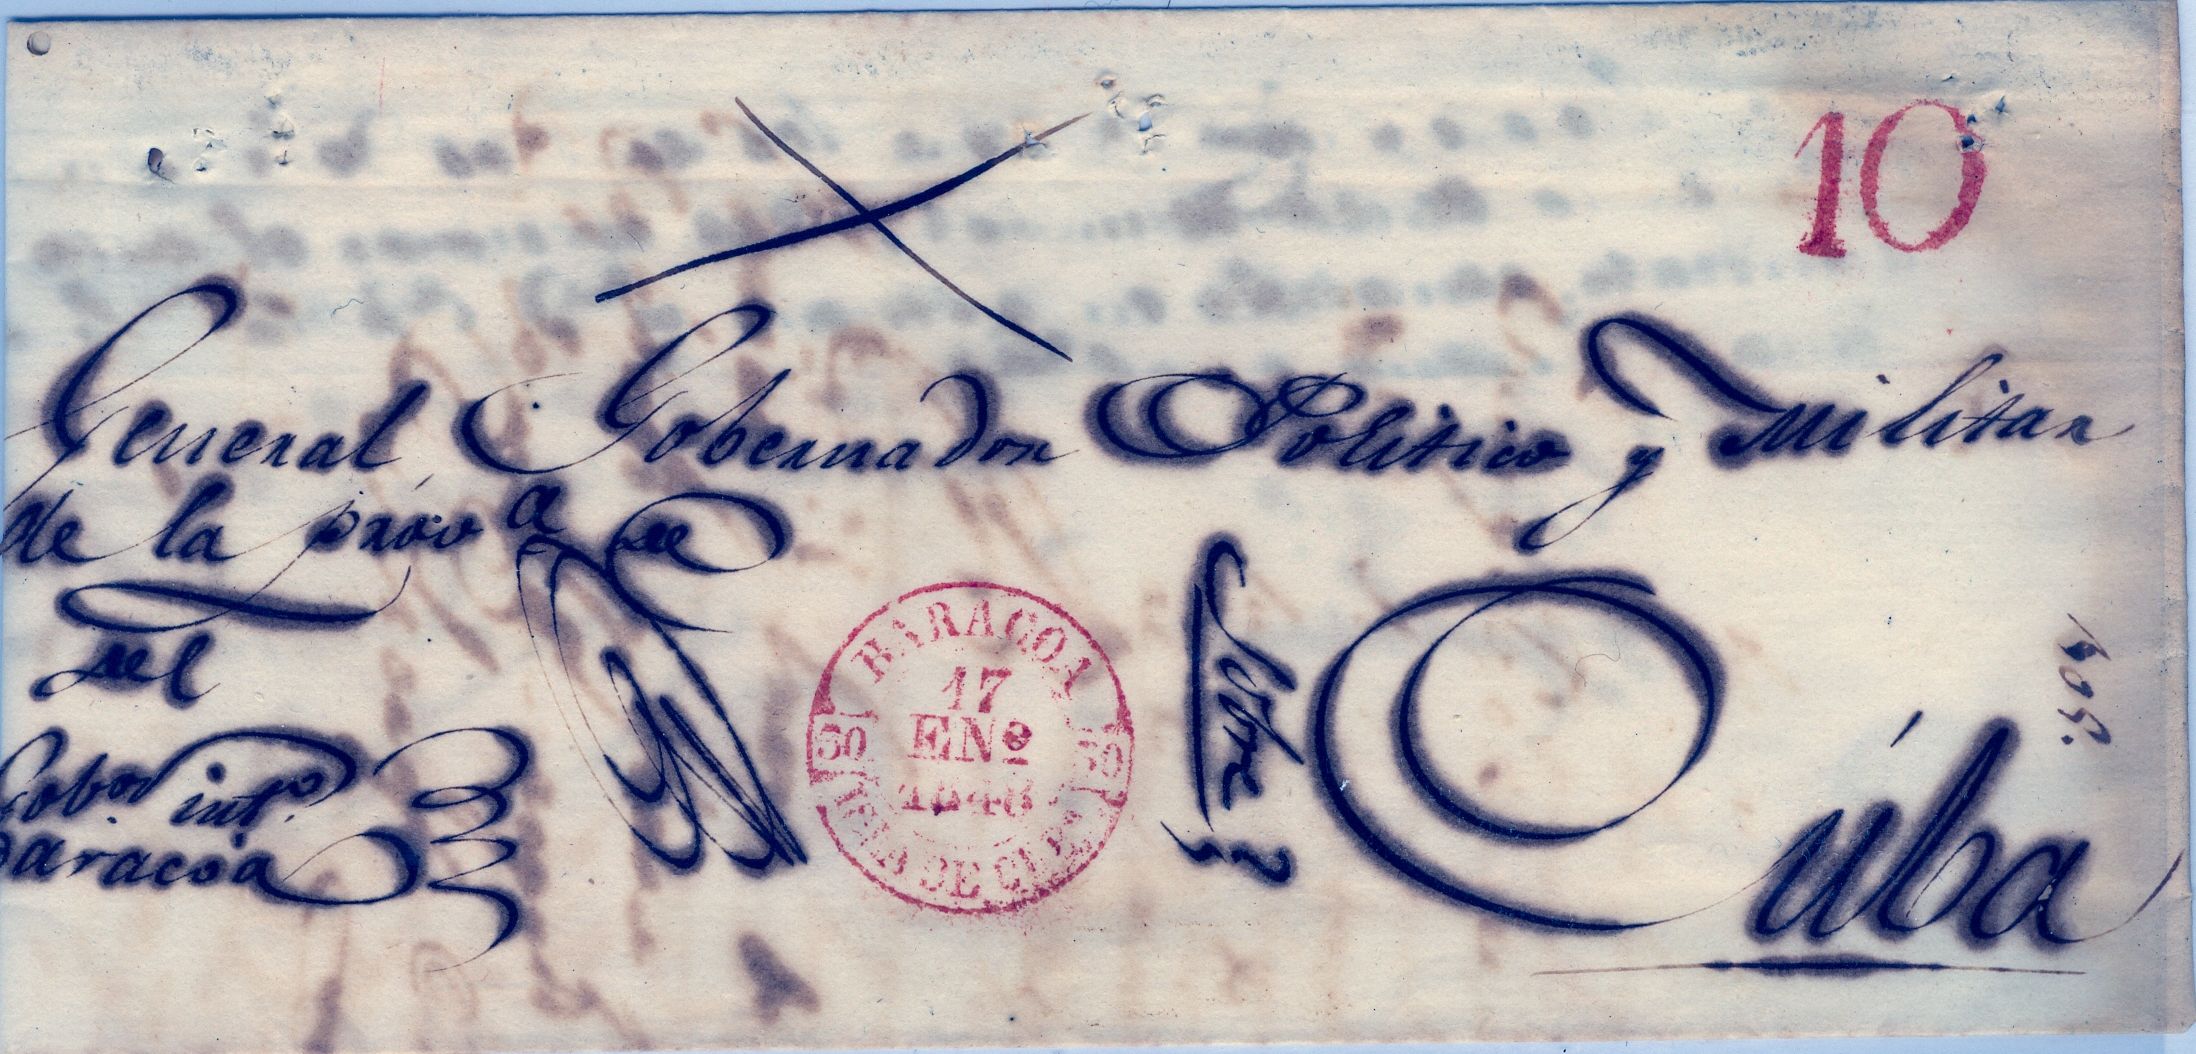 10
General Gobernador Politico y Militar
de la prov a de
Cuba
del
Gobor intº
Baracoa
BARACOA
17
ENº
1848
50 50
ISLA DE CUBA